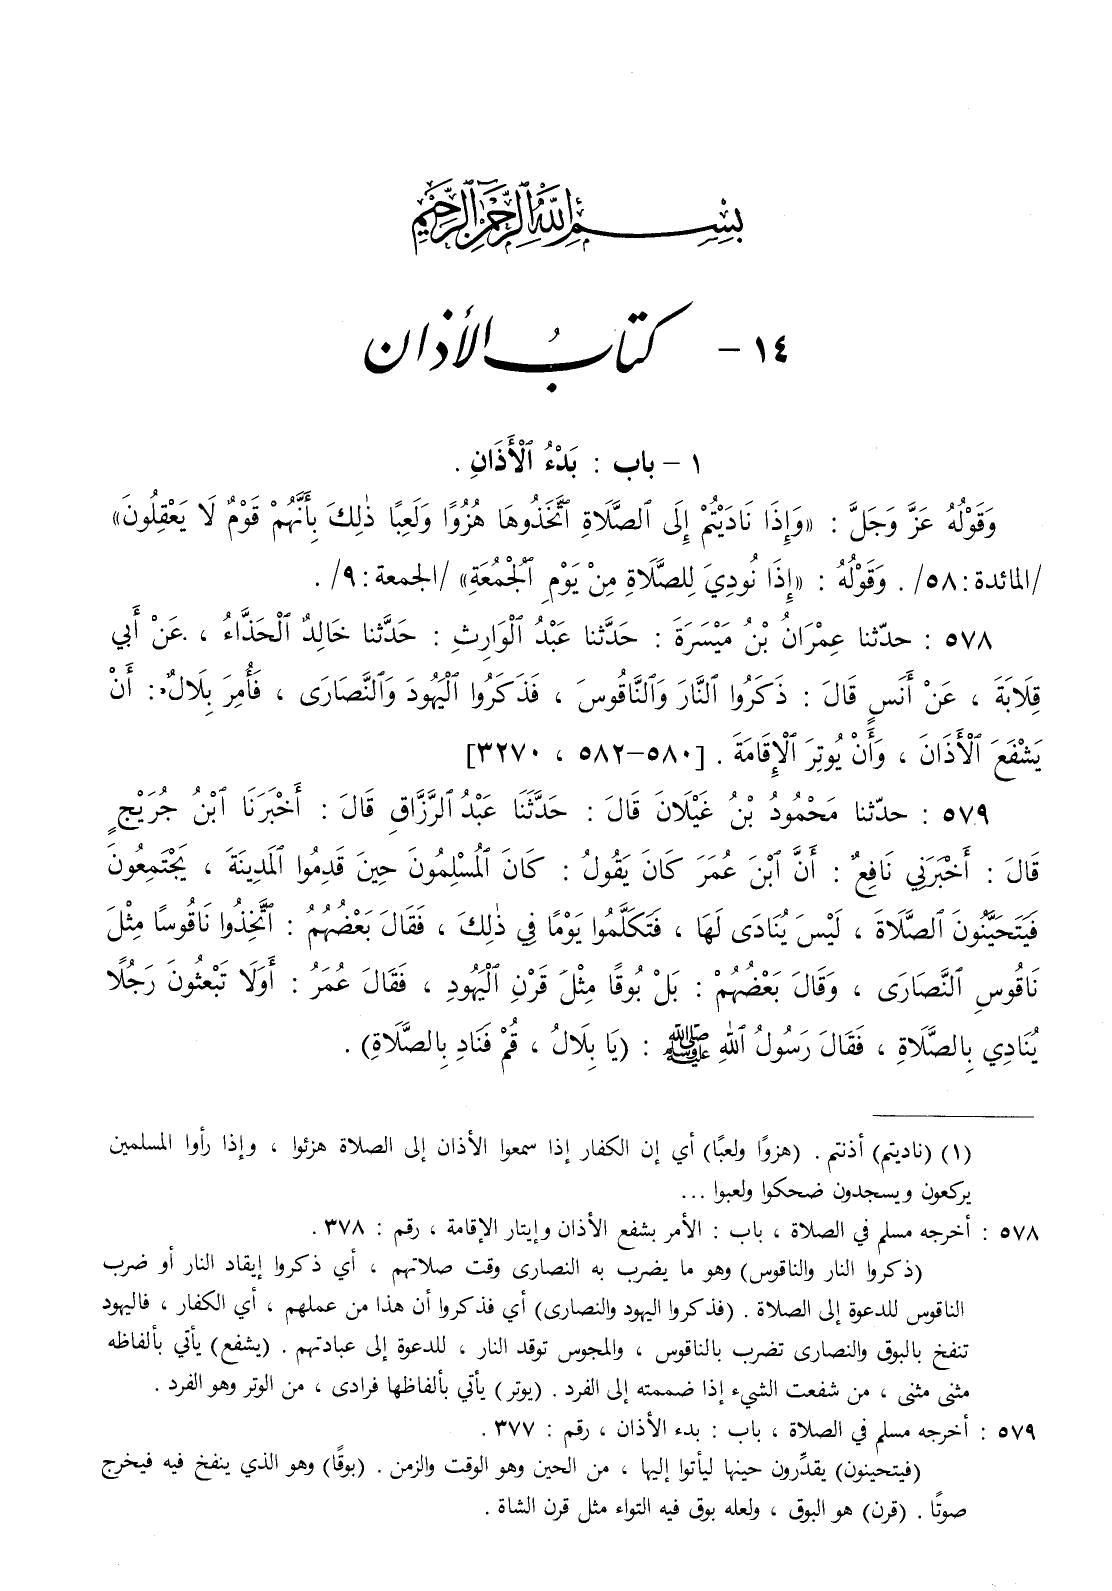 بِسْمِ ٱللَّهِ ٱلرَّحْمَٰنِ ٱلرَّحِيمِ
١٤ – كتابُ الأذان
١ – باب : بَدْءُ ٱلْأَذَانِ .
وَقَوْلُهُ عَزَّ وَجَلَّ : «وَإِذَا نَادَيْتُمْ إِلَى ٱلصَّلَاةِ ٱتَّخَذُوهَا هُزُوًا وَلَعِبًا ذٰلِكَ بِأَنَّهُمْ قَوْمٌ لَا يَعْقِلُونَ»
/المائدة : ٥٨/ . وَقَوْلُهُ : «إِذَا نُودِيَ لِلصَّلَاةِ مِنْ يَوْمِ ٱلْجُمُعَةِ» /الجمعة : ٩/ .
٥٧٨ : حدّثنا عِمْرَانُ بْنُ مَيْسَرَةَ : حَدَّثنا عَبْدُ ٱلْوَارِثِ : حَدَّثنا خَالِدٌ ٱلْحَذَّاءُ ، عَنْ أَبِي
قِلَابَةَ ، عَنْ أَنَسٍ قَالَ : ذَكَرُوا ٱلنَّارَ وَٱلنَّاقُوسَ ، فَذَكَرُوا ٱلْيَهُودَ وَٱلنَّصَارَى ، فَأُمِرَ بِلَالٌ : أَنْ
يَشْفَعَ ٱلْأَذَانَ ، وَأَنْ يُوتِرَ ٱلْإِقَامَةَ . [٥٨٠–٥٨٢ ، ٣٢٧٠]
٥٧٩ : حدّثنا مَحْمُودُ بْنُ غَيْلَانَ قَالَ : حَدَّثَنَا عَبْدُ ٱلرَّزَّاقِ قَالَ : أَخْبَرَنَا ٱبْنُ جُرَيْجٍ
قَالَ : أَخْبَرَنِي نَافِعٌ : أَنَّ ٱبْنَ عُمَرَ كَانَ يَقُولُ : كَانَ ٱلْمُسْلِمُونَ حِينَ قَدِمُوا ٱلْمَدِينَةَ ، يَجْتَمِعُونَ
فَيَتَحَيَّنُونَ ٱلصَّلَاةَ ، لَيْسَ يُنَادَى لَهَا ، فَتَكَلَّمُوا يَوْمًا فِي ذٰلِكَ ، فَقَالَ بَعْضُهُمُ : ٱتَّخِذُوا نَاقُوسًا مِثْلَ
نَاقُوسِ ٱلنَّصَارَى ، وَقَالَ بَعْضُهُمْ : بَلْ بُوقًا مِثْلَ قَرْنِ ٱلْيَهُودِ ، فَقَالَ عُمَرُ : أَوَلَا تَبْعَثُونَ رَجُلًا
يُنَادِي بِالصَّلَاةِ ، فَقَالَ رَسُولُ ٱللهِ ﷺ : (يَا بِلَالُ ، قُمْ فَنَادِ بِالصَّلَاةِ) .
(١) (ناديتم) أذنتم . (هزوًا ولعبًا) أي إن الكفار إذا سمعوا الأذان إلى الصلاة هزئوا ، وإذا رأوا المسلمين
يركعون ويسجدون ضحكوا ولعبوا ...
٥٧٨ : أخرجه مسلم في الصلاة ، باب : الأمر بشفع الأذان وإيتار الإقامة ، رقم : ٣٧٨ .
(ذكروا النار والناقوس) وهو ما يضرب به النصارى وقت صلاتهم ، أي ذكروا إيقاد النار أو ضرب
الناقوس للدعوة إلى الصلاة . (فذكروا اليهود والنصارى) أي فذكروا أن هذا من عملهم ، أي الكفار ، فاليهود
تنفخ بالبوق والنصارى تضرب بالناقوس ، والمجوس توقد النار ، للدعوة إلى عبادتهم . (يشفع) يأتي بألفاظه
مثنى مثنى ، من شفعت الشيء إذا ضممته إلى الفرد . (يوتر) يأتي بألفاظها فرادى ، من الوتر وهو الفرد .
٥٧٩ : أخرجه مسلم في الصلاة ، باب : بدء الأذان ، رقم : ٣٧٧ .
(فيتحينون) يقدِّرون حينها ليأتوا إليها ، من الحين وهو الوقت والزمن . (بوقًا) وهو الذي ينفخ فيه فيخرج
صوتًا . (قرن) هو البوق ، ولعله بوق فيه التواء مثل قرن الشاة .